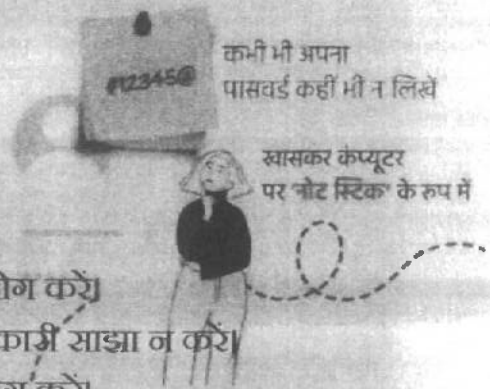 #12345@
कभी भी अपना
पासवर्ड कहीं भी न लिखें
खासकर कंप्यूटर
पर 'नोट स्टिक' के रुप में
करें।
साझा न करें।
करें।